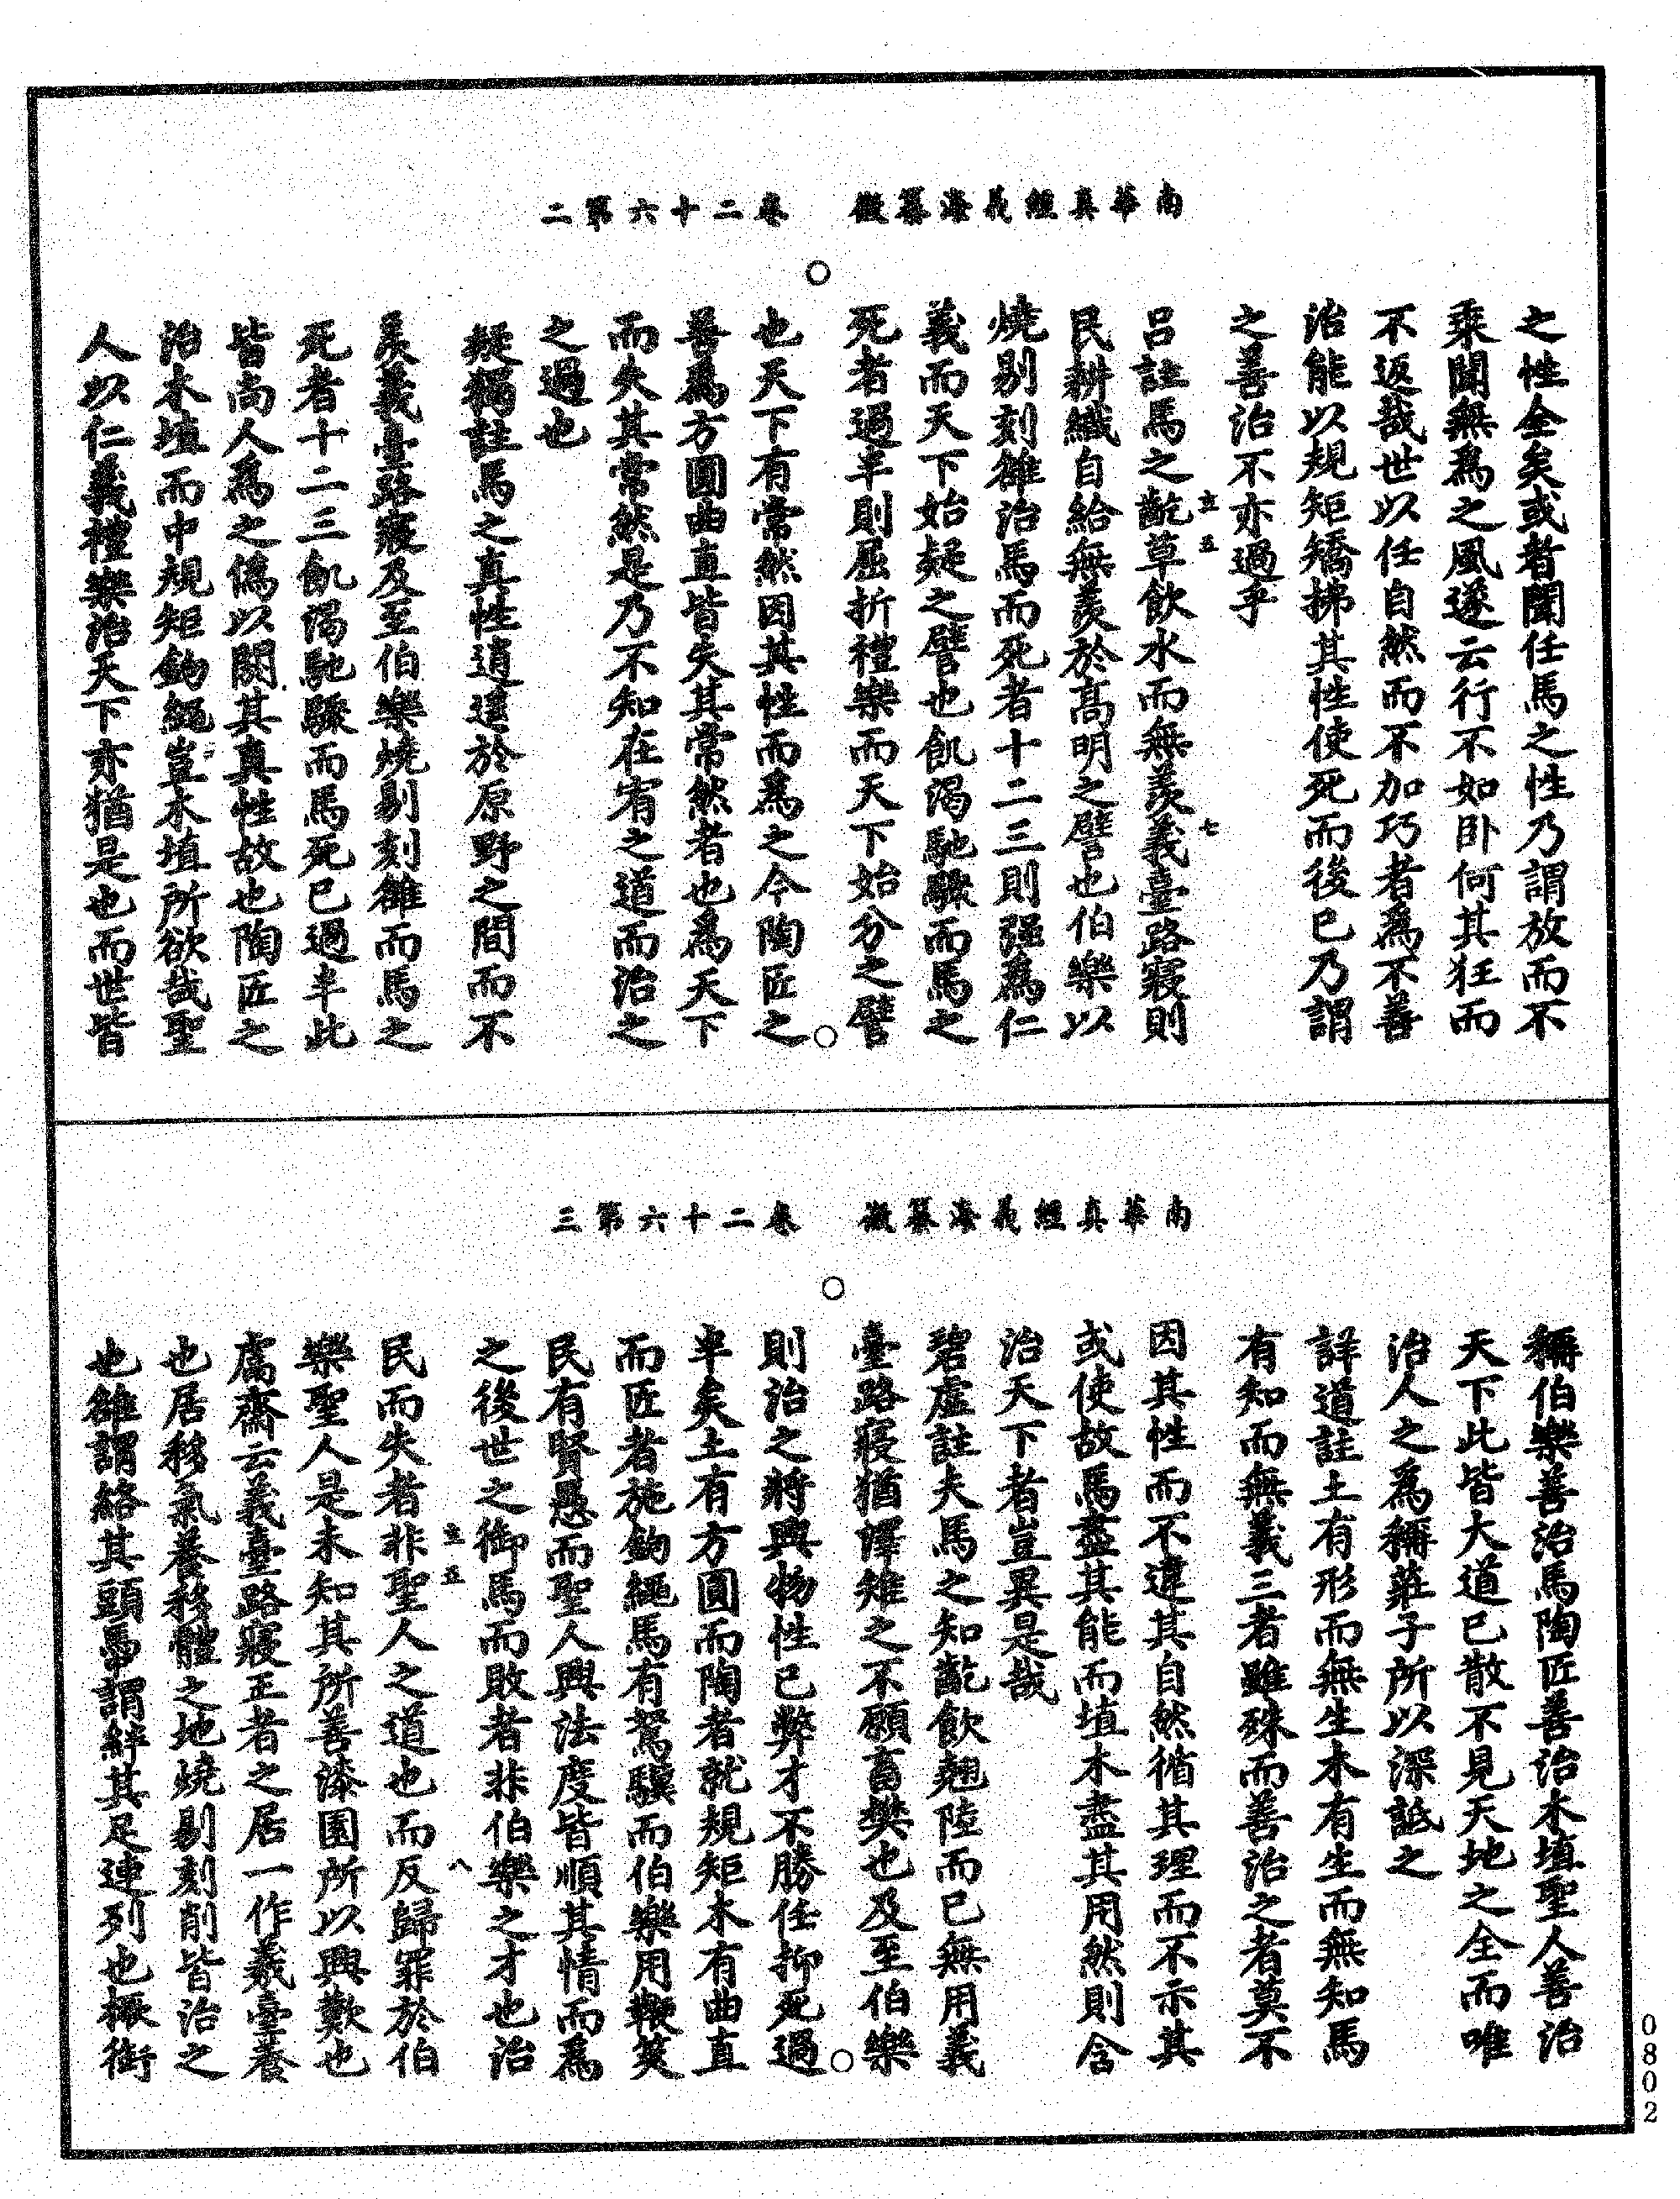 南華真經義海纂微　卷二十六第二
之性全矣或者聞任馬之性乃謂放而不
乘聞無爲之風遂云行不如卧何其狂而
不返哉世以任自然而不加巧者爲不善
治能以規矩矯拂其性使死而後已乃謂
之善治不亦過乎
呂註馬之齕草飲水而無羨義臺路寢則
民耕織自給無羨於高明之譬也伯樂以
燒剔刻雒治馬而死者十二三則强爲仁
義而天下始疑之譬也飢渴馳驟而馬之
死者過半則屈折禮樂而天下始分之譬
也天下有常然因其性而爲之今陶匠之
善爲方圓曲直皆失其常然者也爲天下
而失其常然是乃不知在宥之道而治之
之過也
疑獨註馬之真性逍遥於原野之間而不
羨義臺路寢及至伯樂燒剔刻雒而馬之
死者十二三飢渴馳驟而馬死已過半此
皆尚人爲之僞以閼其真性故也陶匠之
治木埴而中規矩鉤繩豈木埴所欲哉聖
人以仁義禮樂治天下亦猶是也而世皆
玄五
七
南華真經義海纂微　卷二十六第三
稱伯樂善治馬陶匠善治木埴聖人善治
天下此皆大道已散不見天地之全而唯
治人之爲稱莊子所以深詆之
詳道註土有形而無生木有生而無知馬
有知而無義三者雖殊而善治之者莫不
因其性而不違其自然循其理而不示其
或使故馬盡其能而埴木盡其用然則含
治天下者豈異是哉
碧虛註夫馬之知齕飲翹陸而已無用義
臺路寢猶澤雉之不願畜樊也及至伯樂
則治之將興物性已弊才不勝任抑死過
半矣土有方圓而陶者就規矩木有曲直
而匠者施鉤繩馬有駑驥而伯樂用鞭筴
民有賢愚而聖人興法度皆順其情而爲
之後世之御馬而敗者非伯樂之才也治
民而失者非聖人之道也而反歸罪於伯
樂聖人是未知其所善漆園所以興歎也
鬳齋云義臺路寢正者之居一作羲臺養
也居移氣養移體之地燒剔刻削皆治之
也雒謂絡其頭馽謂絆其足連列也橛銜
玄五
八
0802